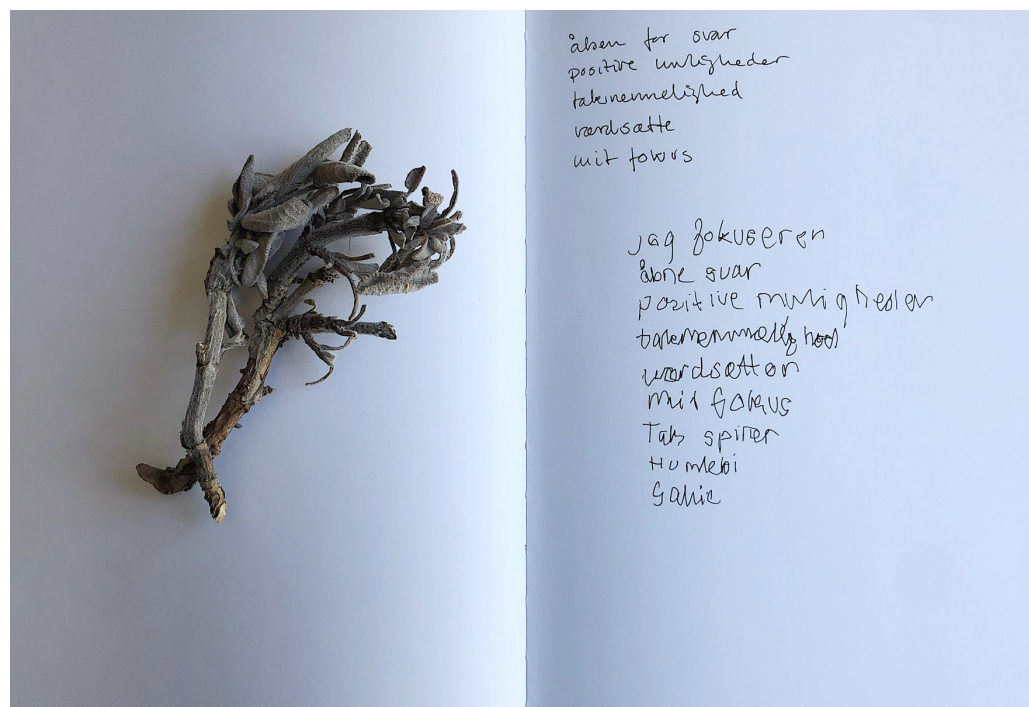 åben for svar
positive muligheder
taknemmelighed
værdsætte
mit fokus
jag fokuserer
åbne svar
positive muligheder
taknemmelighed
værdsætter
mit fokus
Tak spirer
Humlebi